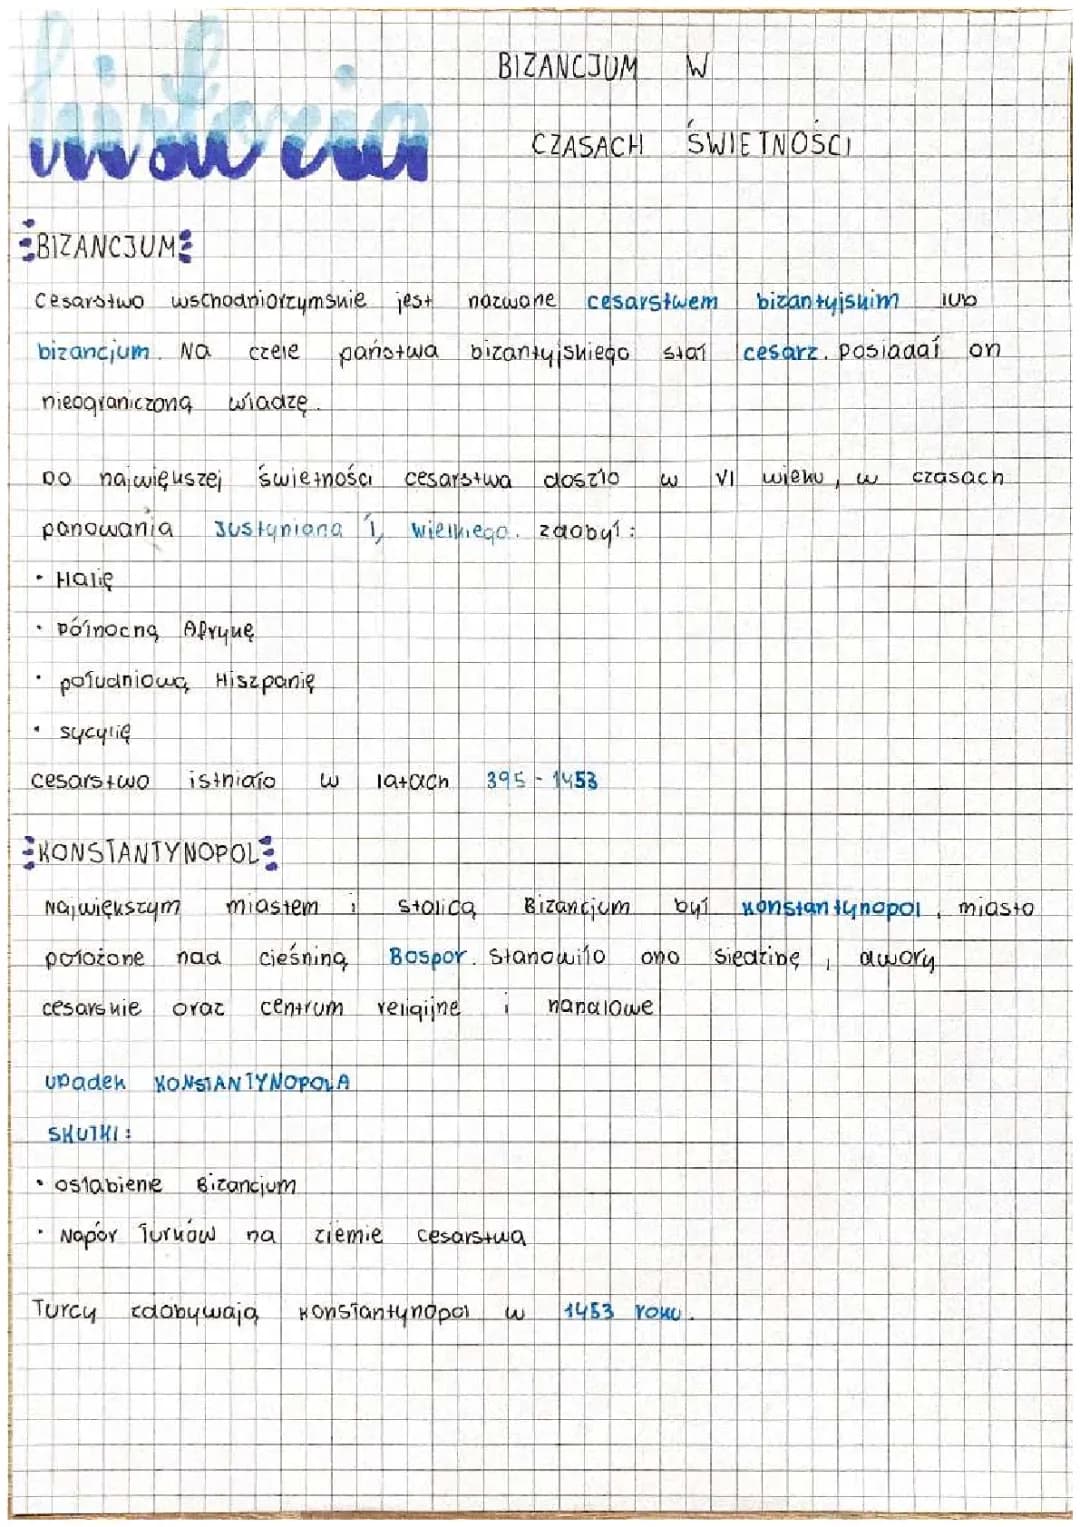 historia
BIZANCJUM W
CZASACH ŚWIETNOŚCI
BIZANCJUM
Cesarstwo wschodniorzymskie jest nazwane cesarstwem bizantyjskim lub
bizancjum. Na czele państwa bizantyjskiego stał cesarz. Posiadał on
nieograniczoną władzę.
DO największej świetności cesarstwa doszło w VI wieku, w czasach
panowania Justyniana I, Wielkiego. zdobył:
• Italię
• Północną Afrykę
• południową Hiszpanię
• sycylię
cesarstwo istniało w latach 395-1453
KONSTANTYNOPOL
Największym miastem i stolicą Bizancjum był konstantynopol, miasto
położone nad cieśniną Bospor. Stanowiło ono siedzibę, dwory
cesarskie oraz centrum religijne i handlowe
upadek KONSTANTYNOPOLA
SKUTKI:
• osłabienie Bizancjum
• Napór Turków na ziemie cesarstwa
Turcy zdobywają Konstantynopol w 1453 roku.